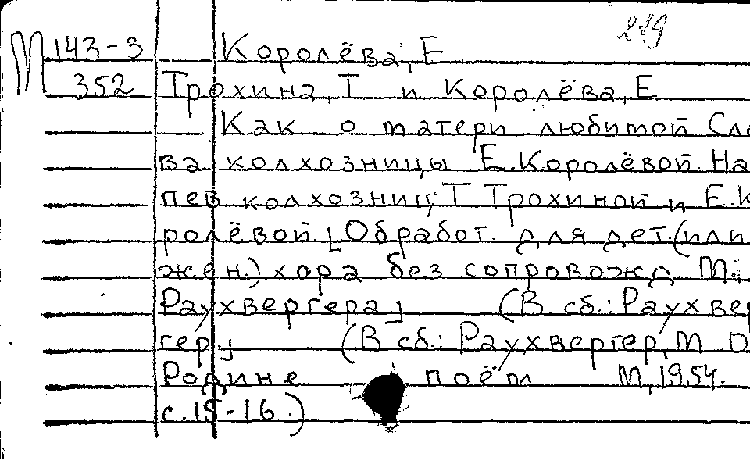 289
М 143-3 Королёва, Е
352 Трохина, Т и Королёва, Е
Как о матери любимой Сло
ва колхозницы Е.Королёвой. На
пев колхозниц Т Трохиной и Е.К
ролёвой. [Обработ. для дет.(или
жен.) хора без сопровожд М.
Раухвергера] (В сб.: Раухвер
гер] (В сб.: Раухвергер, М О
Родине поём М, 1954.
с.15-16.)